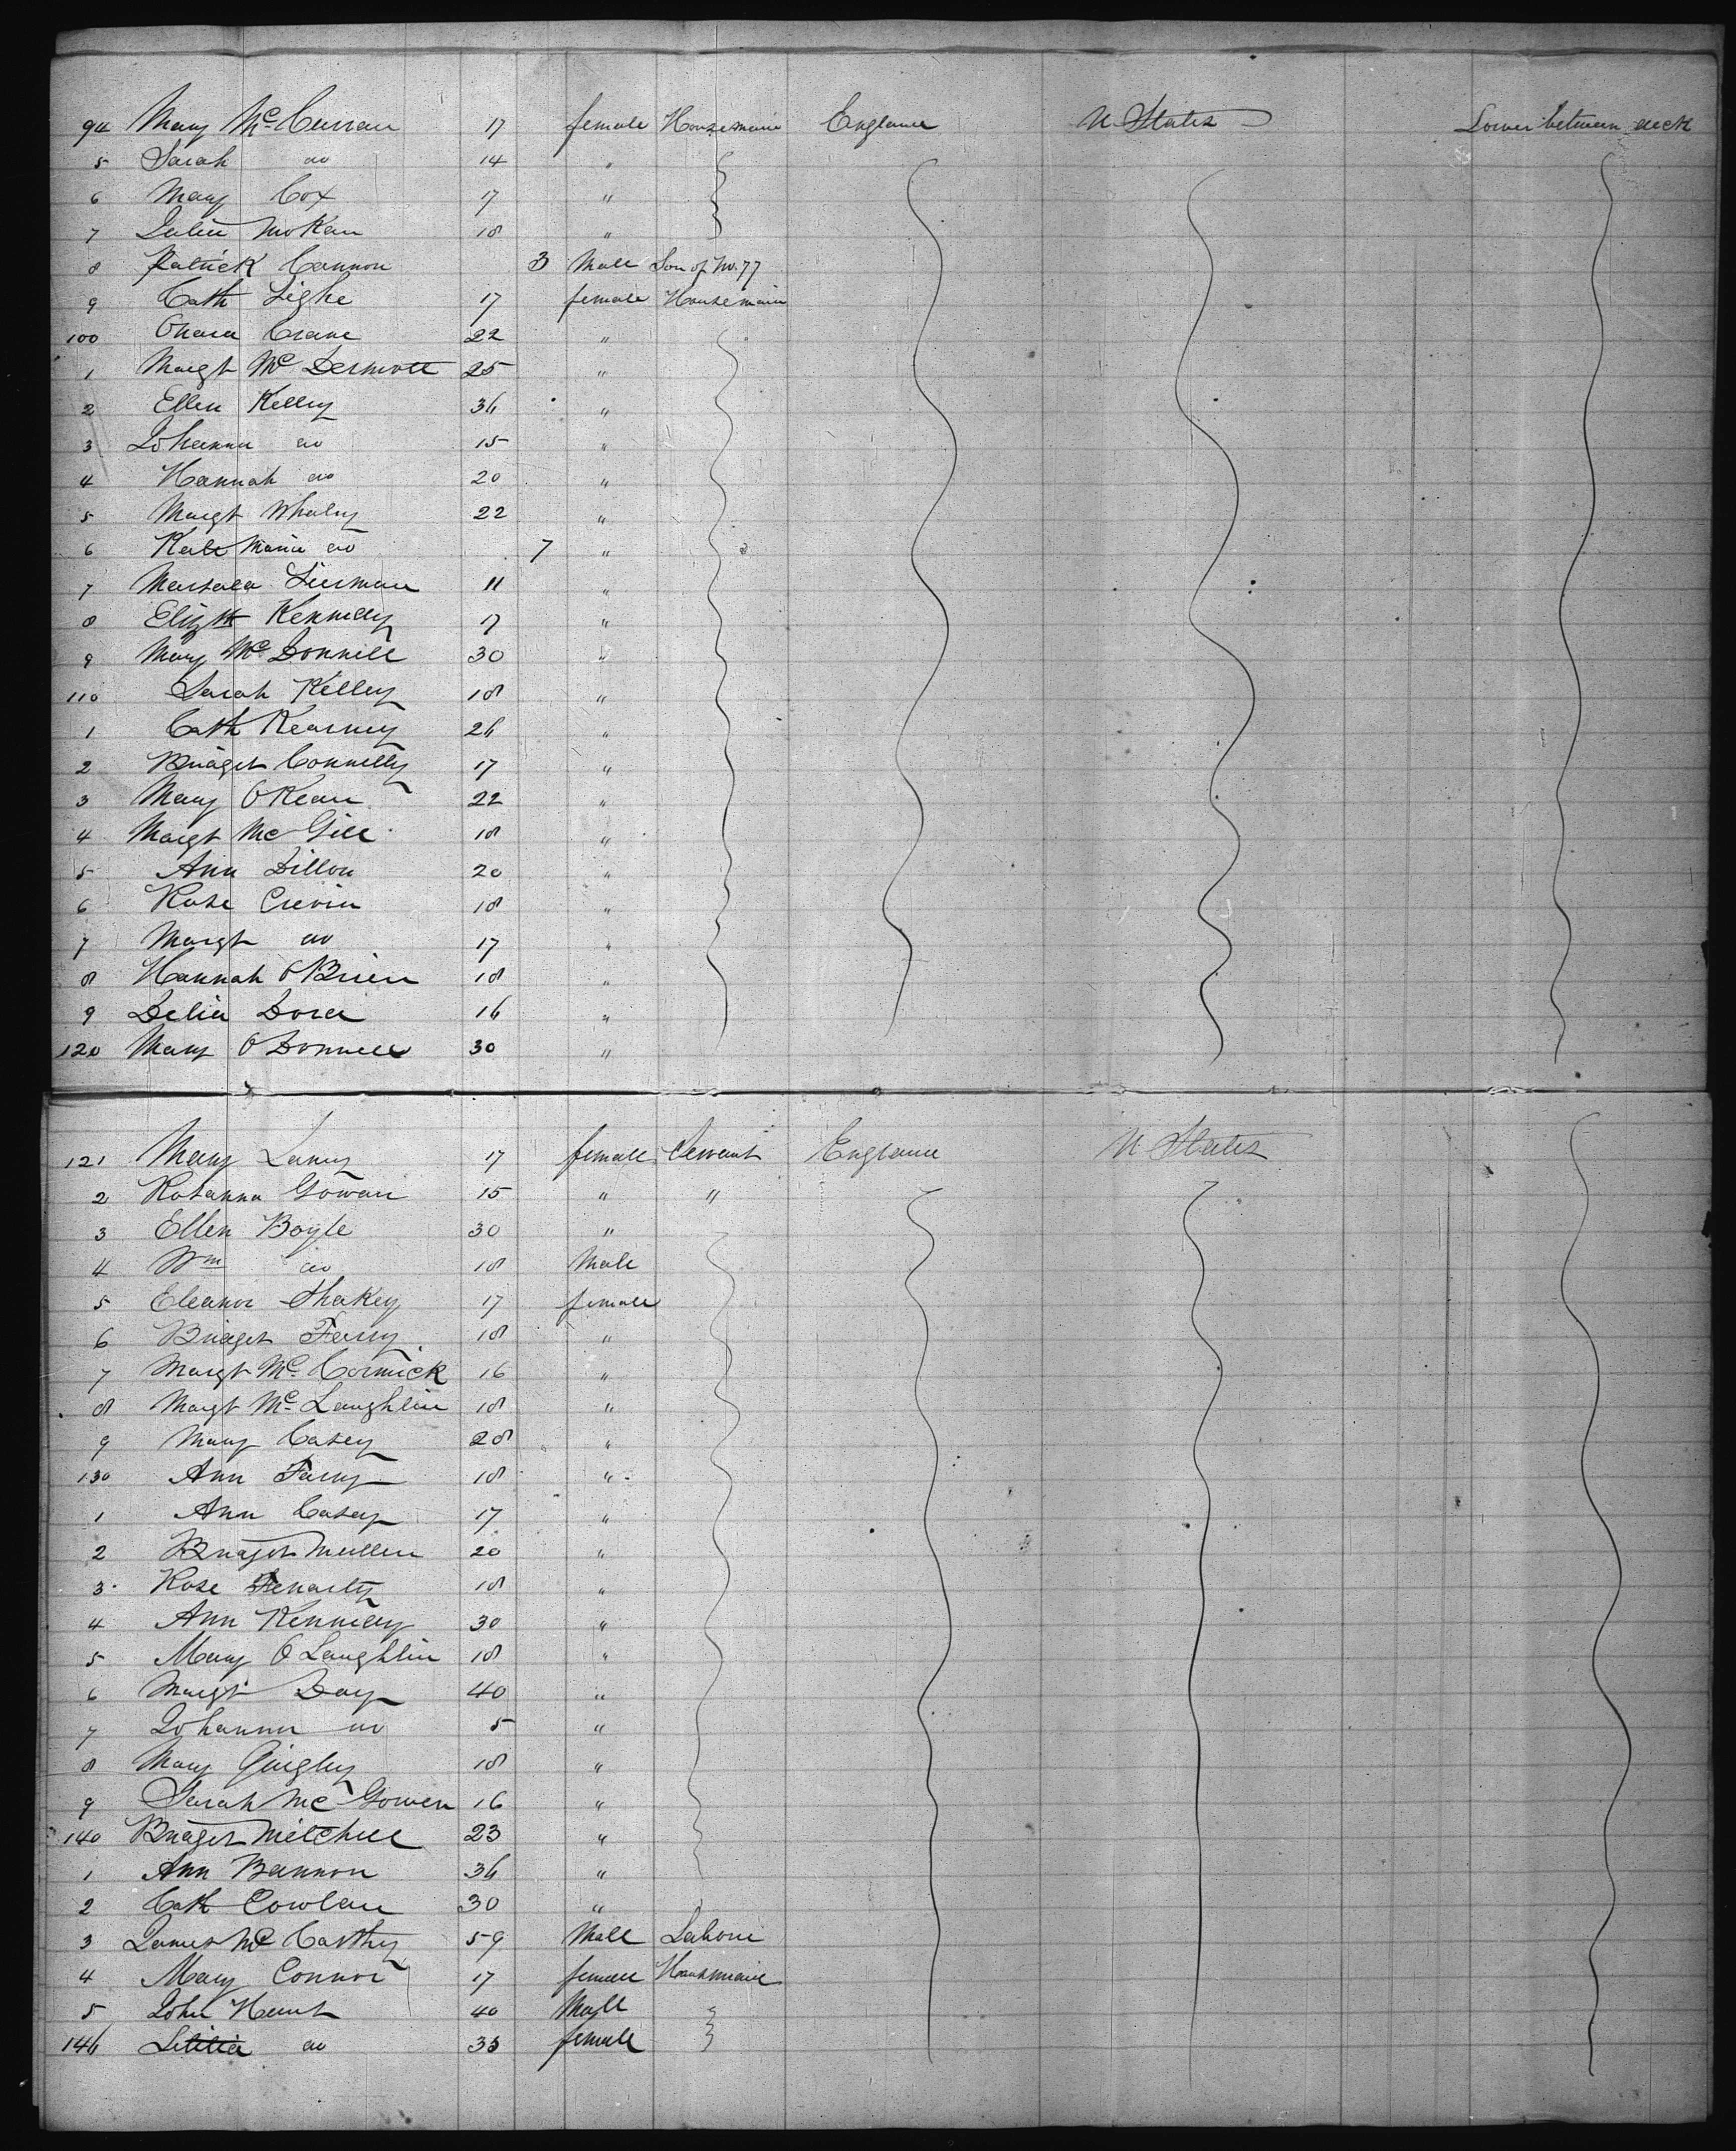 94 Mary McCurran 17 female Housemaid England U States Lower between deck
5 Sarah do 14 "
6 Mary Cox 17 "
7 Julia 18 "
8 Patrick Cannon 3 Male Son of No. 77
9 Cath Lighe 17 female Housemaid
100 Crane 22 "
1 Margt McDermott 25 "
2 Ellen Kelley 36 "
3 Johanna do 15 "
4 Hannah do 20 "
5 Margt Whaley 22 "
6 Kate Maria do 7 "
7 11 "
8 Elizth Kennedy 17 "
9 Mary McDonnell 30 "
110 Sarah Kelley 18 "
1 Cath Kearney 26 "
2 Bridget Connelly 17 "
3 Mary OKean 22 "
4 Margt McGill 18 "
5 Ann Dillon 20 "
6 Rose Crevin 18 "
7 Margt do 17 "
8 Hannah OBrien 18 "
9 Delia Dora 16 "
120 Mary ODonnell 30 "
121 Mary 17 female Servant England U States
2 Rosanna Gowan 15 " "
3 Ellen Boyle 30 "
4 Wm do 18 Male
5 Eleanor Sharkey 17 female
6 Bridget Farry 18 "
7 Margt McCormick 16 "
8 Margt McLaughlin 18 "
9 Mary Casey 28 "
130 Ann Farry 18 "
1 Ann Casey 17 "
2 Bridget Mullen 20 "
3 Rose Fenarty 18 "
4 Ann Kennedy 30 "
5 Mary OLaughlin 18 "
6 Margt Day 40 "
7 Johanna do 5 "
8 Mary Quigley 18 "
9 Sarah McGowen 16 "
140 Bridget Mitchell 23 "
1 Ann Bannon 36 "
2 Cath Cowlan 30 "
3 James McCarthy 59 Male Labour
4 Mary Connor 17 female Housemaid
5 John Hunt 40 Male
146 Letitia do 33 female